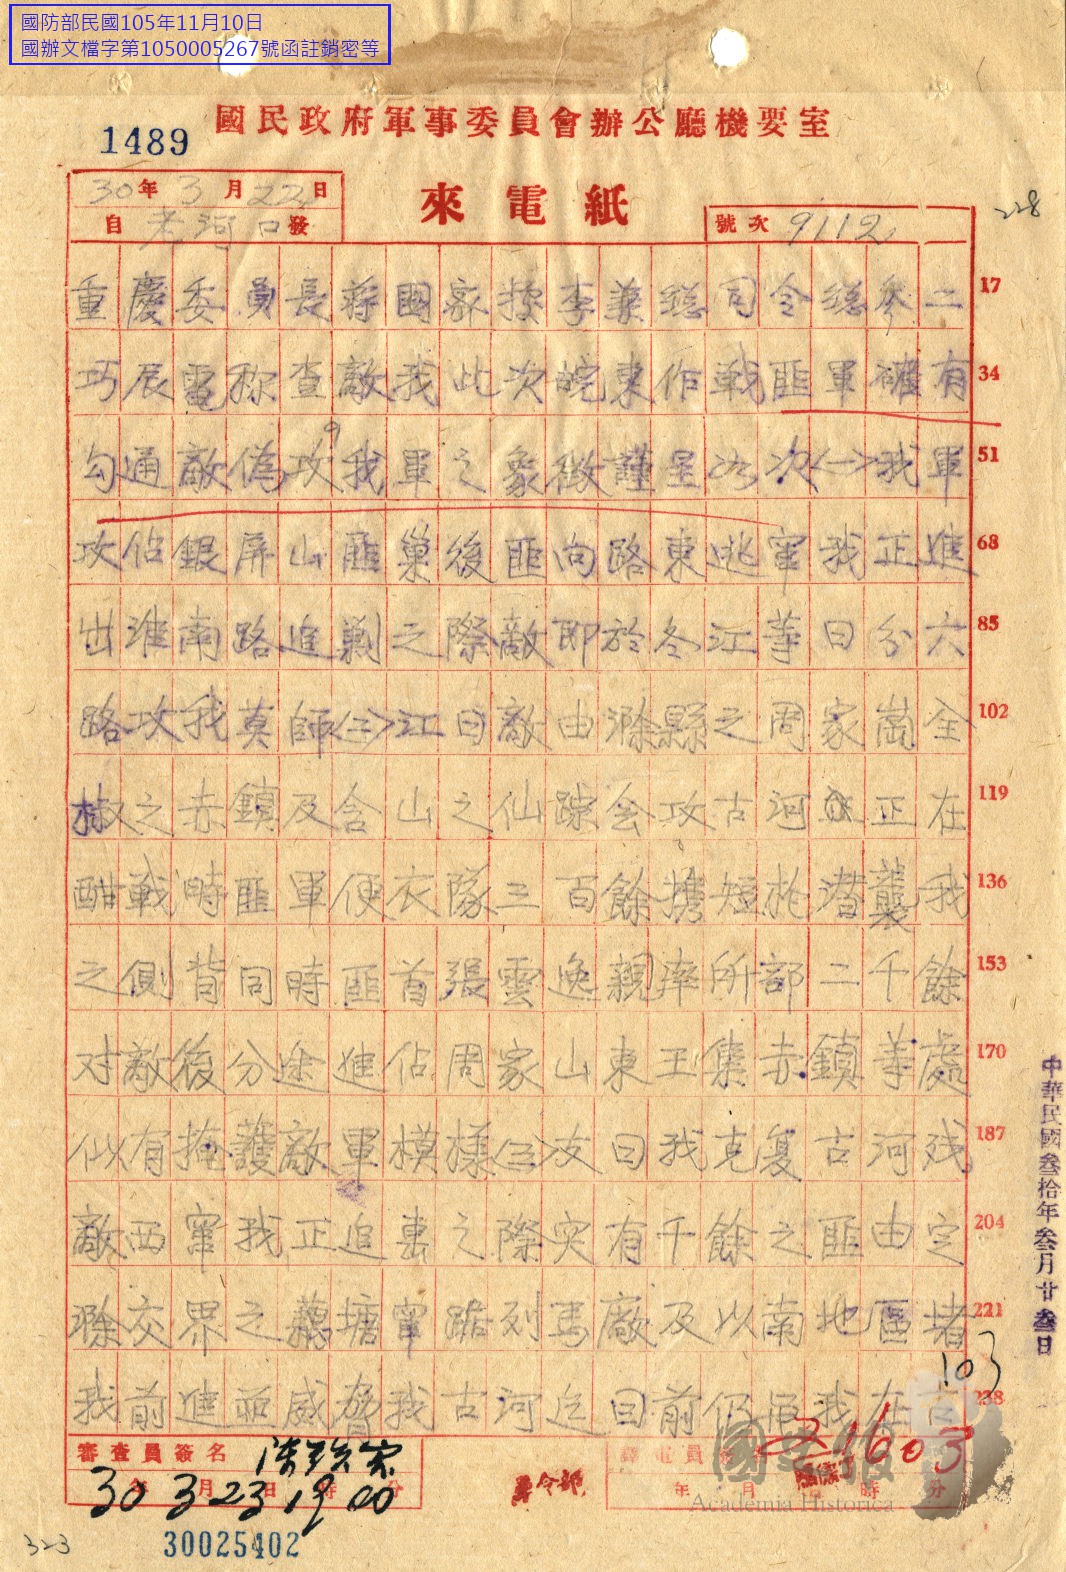 國防部民國105年11月10日
國辦文檔字第1050005267號函註銷密等
國民政府軍事委員會辦公廳機要室
1489
30年3月22日
來電紙
228
自老河口發
號次 9112
重慶委員長蔣國密據李兼總司令總參二 17
巧辰電稱查敵我此次皖東作戰匪軍確有 34
勾通敵偽攻我軍之象徵謹呈如次<一>我軍 51
攻佔銀屏山匪巢後匪向路東逃竄我正進 68
出淮南路進剿之際敵即於冬江等日分六 85
路攻我莫師<二>江日敵由滁縣之周家崗全 102
椒之赤鎮及含山之仙踪会攻古河正在 119
酣戰時匪軍便衣隊三百餘攜短枪潛襲我 136
之側背同時匪首張雲逸親率所部二千餘 153
对敵後分途進佔周家山東王集赤鎮等處 170
似有掩護敵軍模樣<三>支日我克复古河残 187
敵西竄我正追擊之際突有千餘之匪由定 204
滁交界之藕塘竄踞列馬廠及以南地區堵 221
我前進并威脅我古河迄日前仍与我在古 238
中華民國叁拾年叁月廿叁日
103
審查員簽名
譯電員簽名
31603
30年3月23日19時00分
年月日時分
軍令部
國史館
Academia Historica
323
30025402